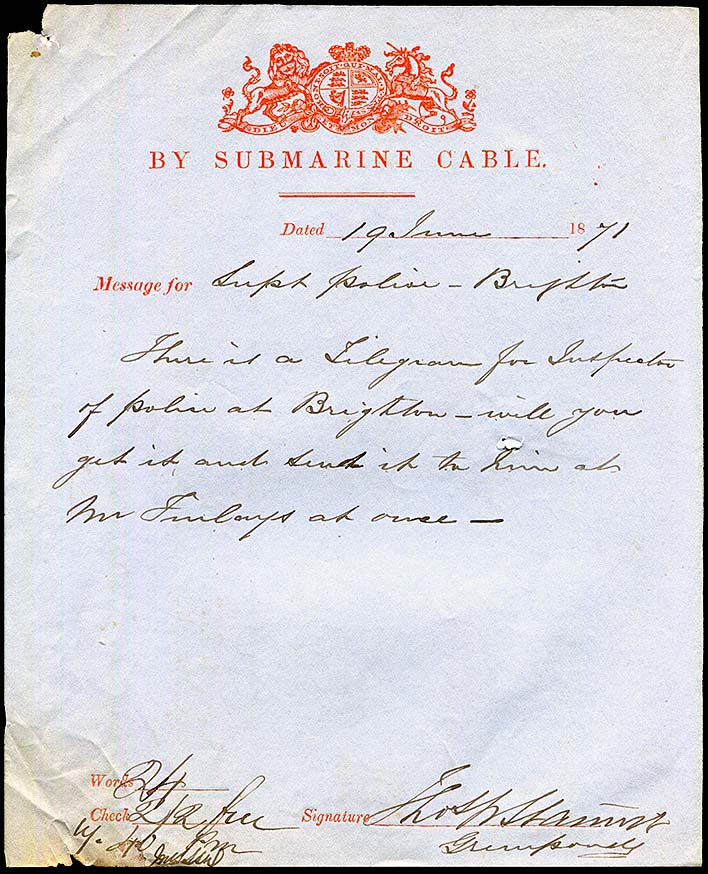 DIEU ET MON DROIT
BY SUBMARINE CABLE.
Dated 19 June 1871
Message for Supt police - Brighton
There is a Telegram for Inspector
of police at Brighton - will you
get it and send it to him at
Mr Finlays at once -
Words 24
Check 2/2 free
Signature Thos
4. 40 Pm